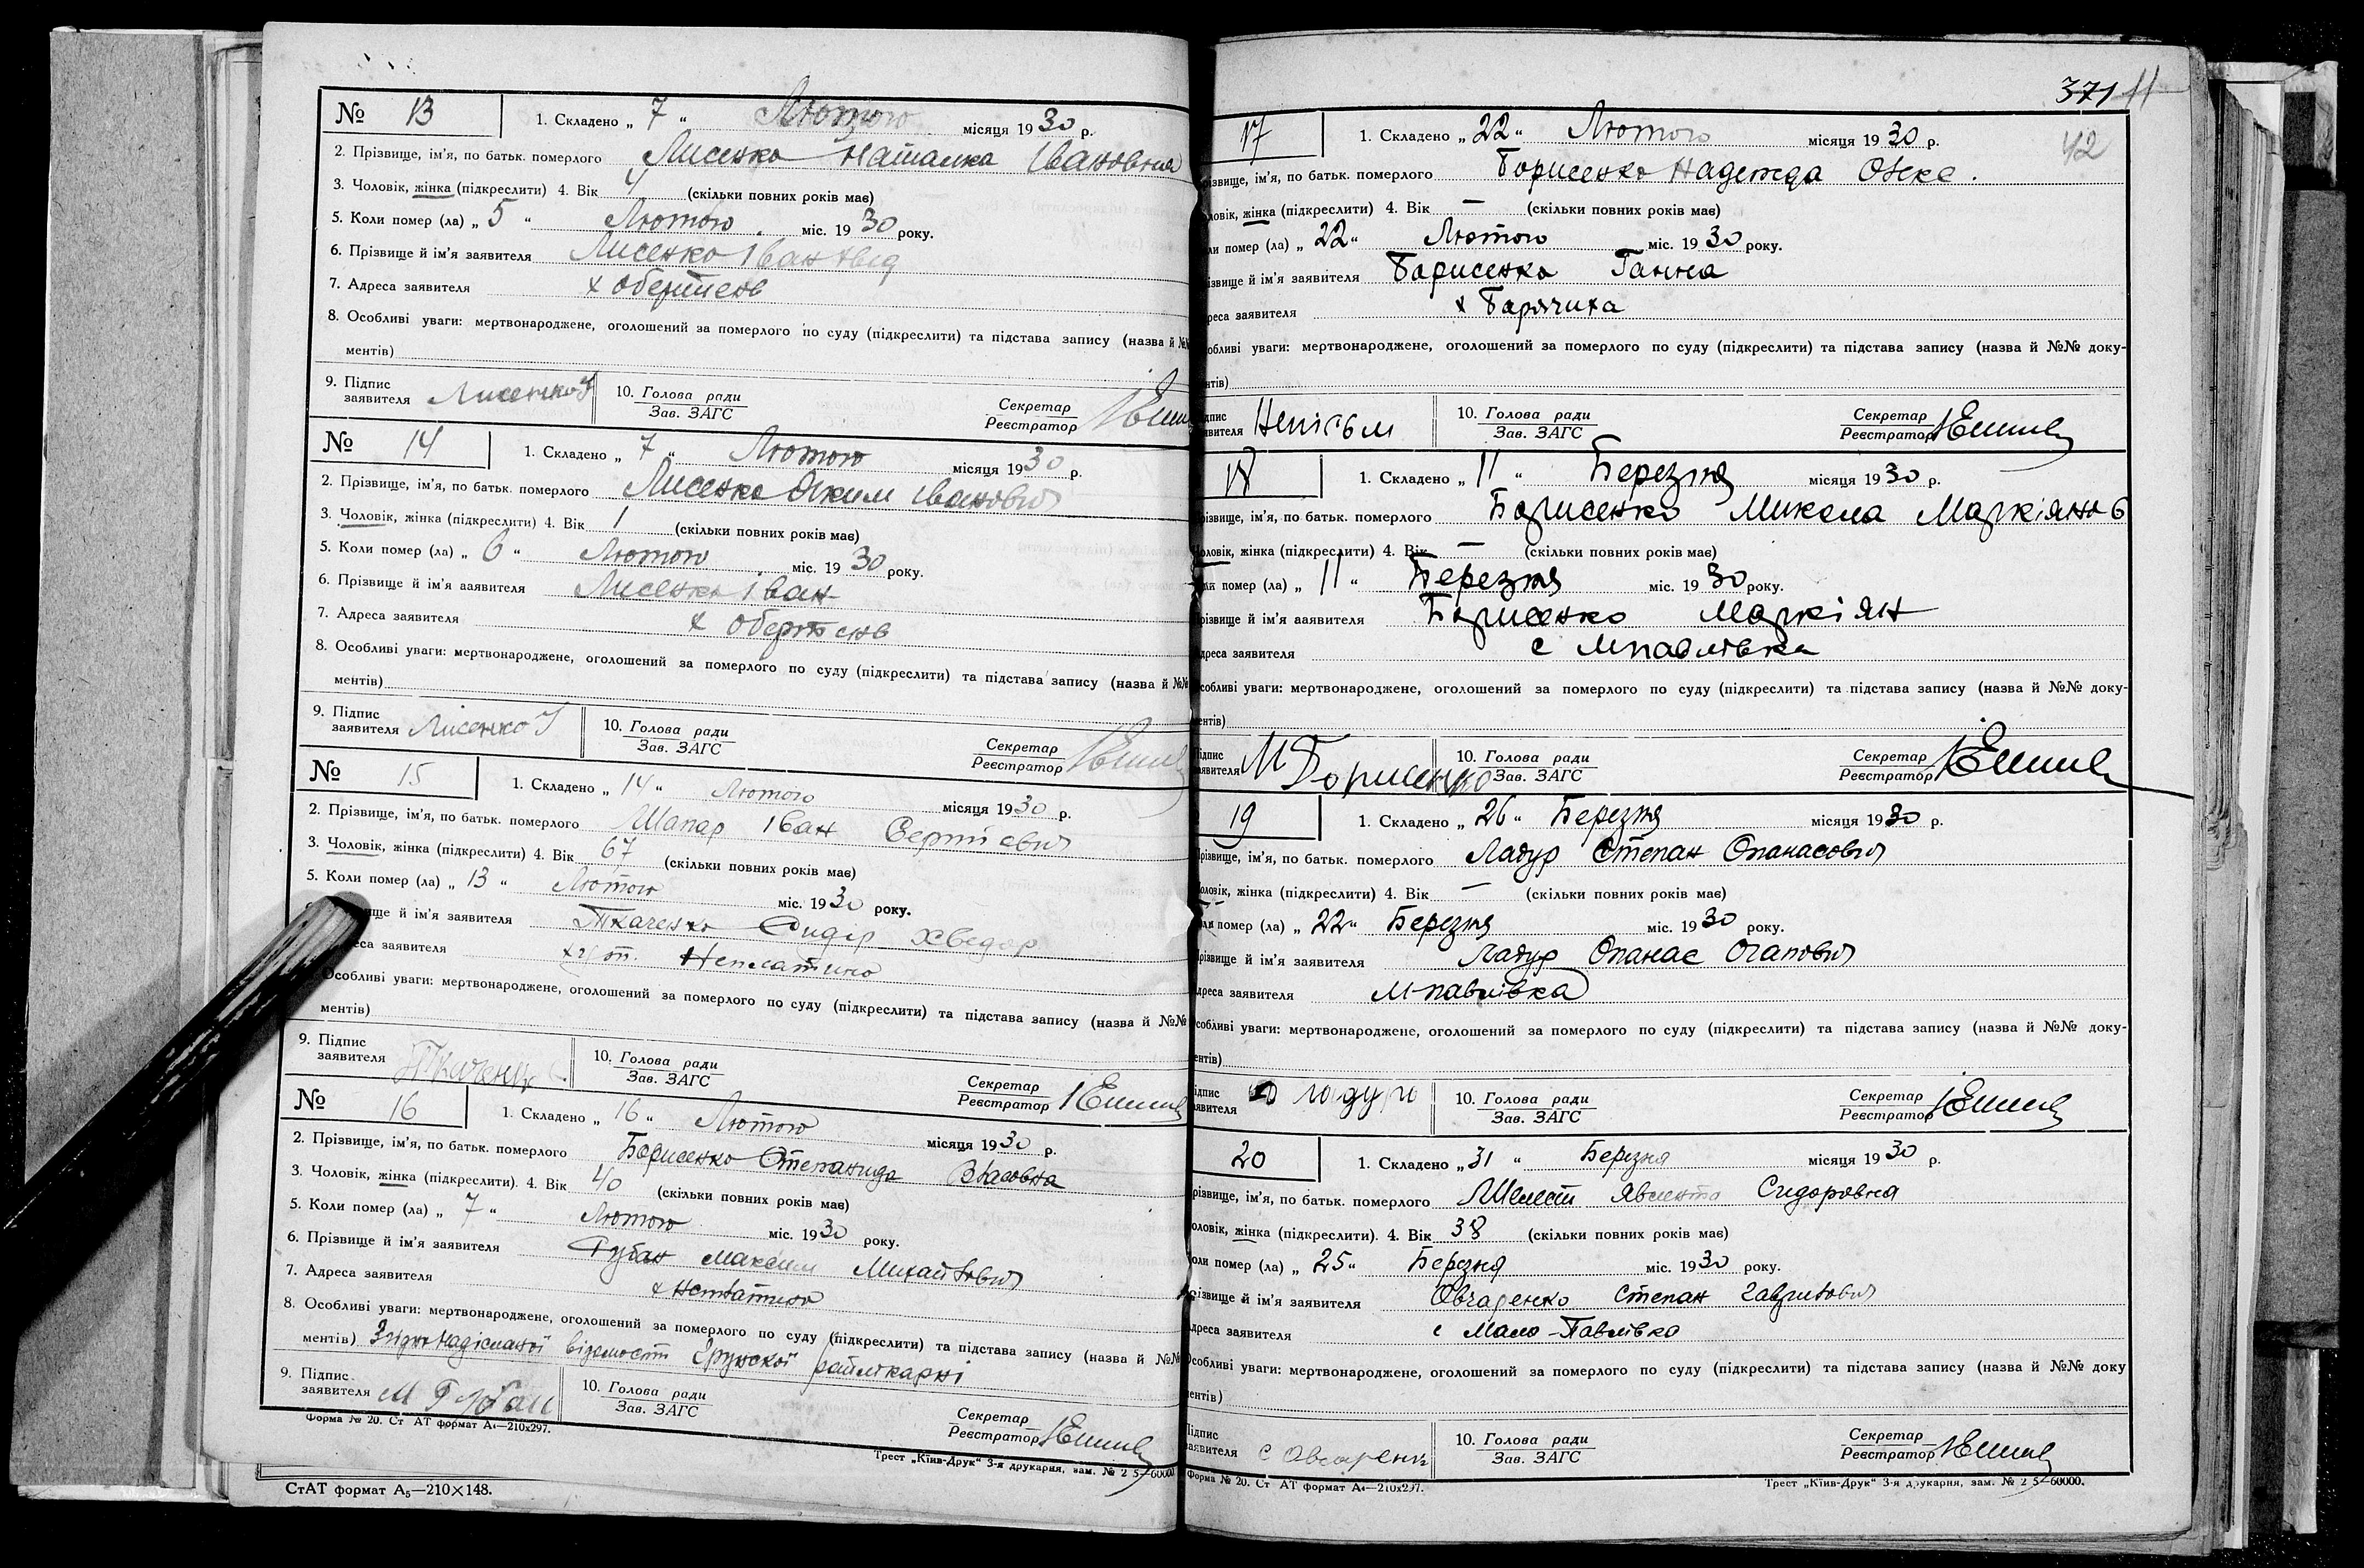 № 13 1. Складено „ 7 “ Лютого місяця 1930 р.
2. Прізвище, ім'я, по батьк. померлого Лисенко Наталка Івановна
3. Чоловік, жінка (підкреслити) 4. Вік 4 (скільки повних років має)
5. Коли помер (ла) „ 5 “ Лютого міс. 1930 року.
6. Прізвище й ім'я заявителя Лисенко Іван
7. Адреса заявителя х Обертень
8. Особливі уваги: мертвонароджене, оголошений за померлого по суду (підкреслити) та підстава запису (назва й №№
ментів)
9. Підпис заявителя Лисенко І 10. Голова ради Зав. ЗАГС Секретар Реєстратор
№ 14 1. Складено „ 7 “ Лютого місяця 1930 р.
2. Прізвище, ім'я, по батьк. померлого Лисенко Яким Іванович
3. Чоловік, жінка (підкреслити) 4. Вік 1 (скільки повних років має)
5. Коли помер (ла) „ 6 “ Лютого міс. 1930 року.
6. Прізвище й ім'я заявителя Лисенко Іван
7. Адреса заявителя х Обертень
8. Особливі уваги: мертвонароджене, оголошений за померлого по суду (підкреслити) та підстава запису (назва й №№
ментів)
9. Підпис заявителя Лисенко І 10. Голова ради Зав. ЗАГС Секретар Реєстратор
№ 15 1. Складено „ 14 “ Лютого місяця 1930 р.
2. Прізвище, ім'я, по батьк. померлого Шапар Іван Сергієвич
3. Чоловік, жінка (підкреслити) 4. Вік 67 (скільки повних років має)
5. Коли помер (ла) „ 13 “ Лютого міс. 1930 року.
ище й ім'я заявителя Ткаченко Сидір Хведор
еса заявителя хут. Неплатино
Особливі уваги: мертвонароджене, оголошений за померлого по суду (підкреслити) та підстава запису (назва й №№
ментів)
9. Підпис заявителя Ткаченко 10. Голова ради Зав. ЗАГС Секретар Реєстратор
№ 16 1. Складено „ 16 “ Лютого місяця 1930 р.
2. Прізвище, ім'я, по батьк. померлого Борисенко Степанида Власовна
3. Чоловік, жінка (підкреслити). 4. Вік 40 (скільки повних років має)
5. Коли помер (ла) „ 7 “ Лютого міс. 1930 року.
6. Прізвище й ім'я заявителя Губан Максим Михайлович
7. Адреса заявителя х Неплатино
8. Особливі уваги: мертвонароджене, оголошений за померлого по суду (підкреслити) та підстава запису (назва й №№
ментів) Згідно надісланої відомості Грунської райлікарні
9. Підпис заявителя М Губан 10. Голова ради Зав. ЗАГС Секретар Реєстратор
Форма № 20. Ст АТ формат А4—210х297. Трест „Київ-Друк“ 3-я друкарня, зам. № 2 5—60000
СтАТ формат А5—210×148.
371 11
42
17 1. Складено „ 22 “ Лютого місяця 1930 р.
різвище, ім'я, по батьк. померлого Борисенко Надежда Олекс.
ловік, жінка (підкреслити) 4. Вік — (скільки повних років має)
ли помер (ла) „ 22 “ Лютого міс. 1930 року.
ізвище й ім'я заявителя Борисенко Ганна
реса заявителя х Барячиха
обливі уваги: мертвонароджене, оголошений за померлого по суду (підкреслити) та підстава запису (назва й №№ доку-
нтів)
дпис явителя Непісьм 10. Голова ради Зав. ЗАГС Секретар Реєстратор
18 1. Складено „ 11 “ Березня місяця 1930 р.
різвище, ім'я, по батьк. померлого Борисенко Микола Маркіянов
оловік, жінка (підкреслити) 4. Вік — (скільки повних років має)
ли помер (ла) „ 11 “ Березня міс. 1930 року.
різвище й ім'я заявителя Борисенко Маркіян
дреса заявителя с Мпавлівка
собливі уваги: мертвонароджене, оголошений за померлого по суду (підкреслити) та підстава запису (назва й №№ доку-
ентів)
ідпис аявителя М Борисенко 10. Голова ради Зав. ЗАГС Секретар Реєстратор
19 1. Складено „ 26 “ Березня місяця 1930 р.
різвище, ім'я, по батьк. померлого Ладур Степан Опанасович
оловік, жінка (підкреслити) 4. Вік — (скільки повних років має)
ли помер (ла) „ 22 “ Березня міс. 1930 року.
різвище й ім'я заявителя Ладур Опанас Огапович
дреса заявителя М-павлівка
собливі уваги: мертвонароджене, оголошений за померлого по суду (підкреслити) та підстава запису (назва й №№ доку-
ентів)
ідпис аявителя 10. Голова ради Зав. ЗАГС Секретар Реєстратор
20 1. Складено „ 31 “ Березня місяця 1930 р.
різвище, ім'я, по батьк. померлого Шелест Сидоровна
оловік, жінка (підкреслити). 4. Вік 38 (скільки повних років має)
оли помер (ла) „ 25 “ Березня міс. 1930 року.
різвище й ім'я заявителя Овчаренко Степан Гаврилович
дреса заявителя с Мало-Павлівка
Особливі уваги: мертвонароджене, оголошений за померлого по суду (підкреслити) та підстава запису (назва й №№ доку
ентів)
Підпис заявителя С Овчаренк 10. Голова ради Зав. ЗАГС Секретар Реєстратор
Форма № 20. Ст АТ формат А4—210х297. Трест „Київ-Друк“ 3-я друкарня, зам. № 2 5—60000.